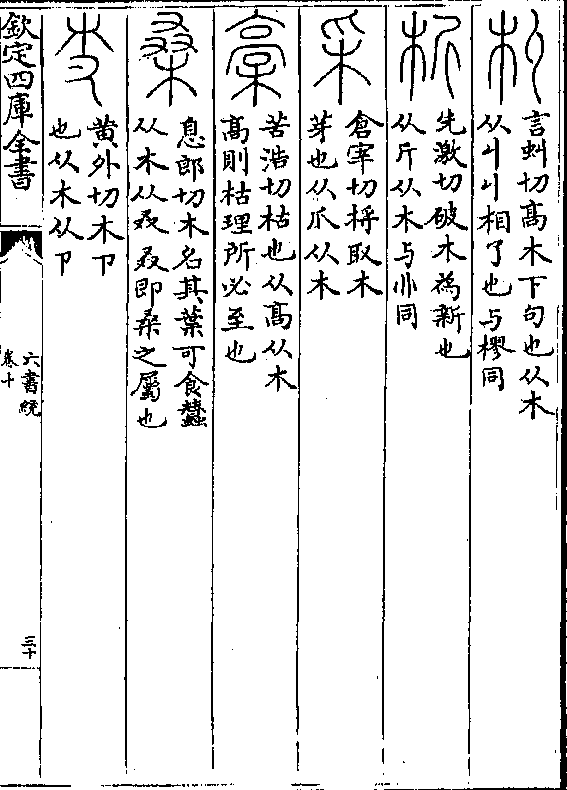 朻
言虯切高木下句也从木
从丩丩相了也与樛同
析
先激切破木為新也
从斤从木与同
采
倉宰切捋取木
芽也从爪从木
槀
苦浩切枯也从高从木
高則枯理所必至也
桑
息郎切木名其葉可食蠶
从木从叒叒即桑之屬也
黄外切木卩
也从木从卩
欽定四庫全書
六書統
卷十
三十